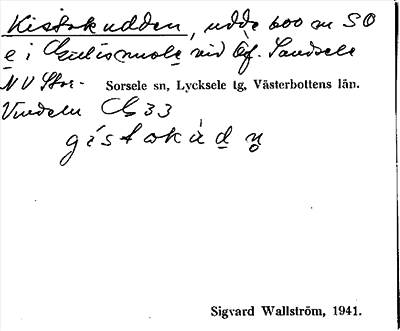 Kistokudden, udde 600 m SO
e i vid Öf. Sandsele
N V Stor-
Sorsele sn, Lycksele tg, Västerbottens län.
Vindeln 33
Sigvard Wallström, 1941.